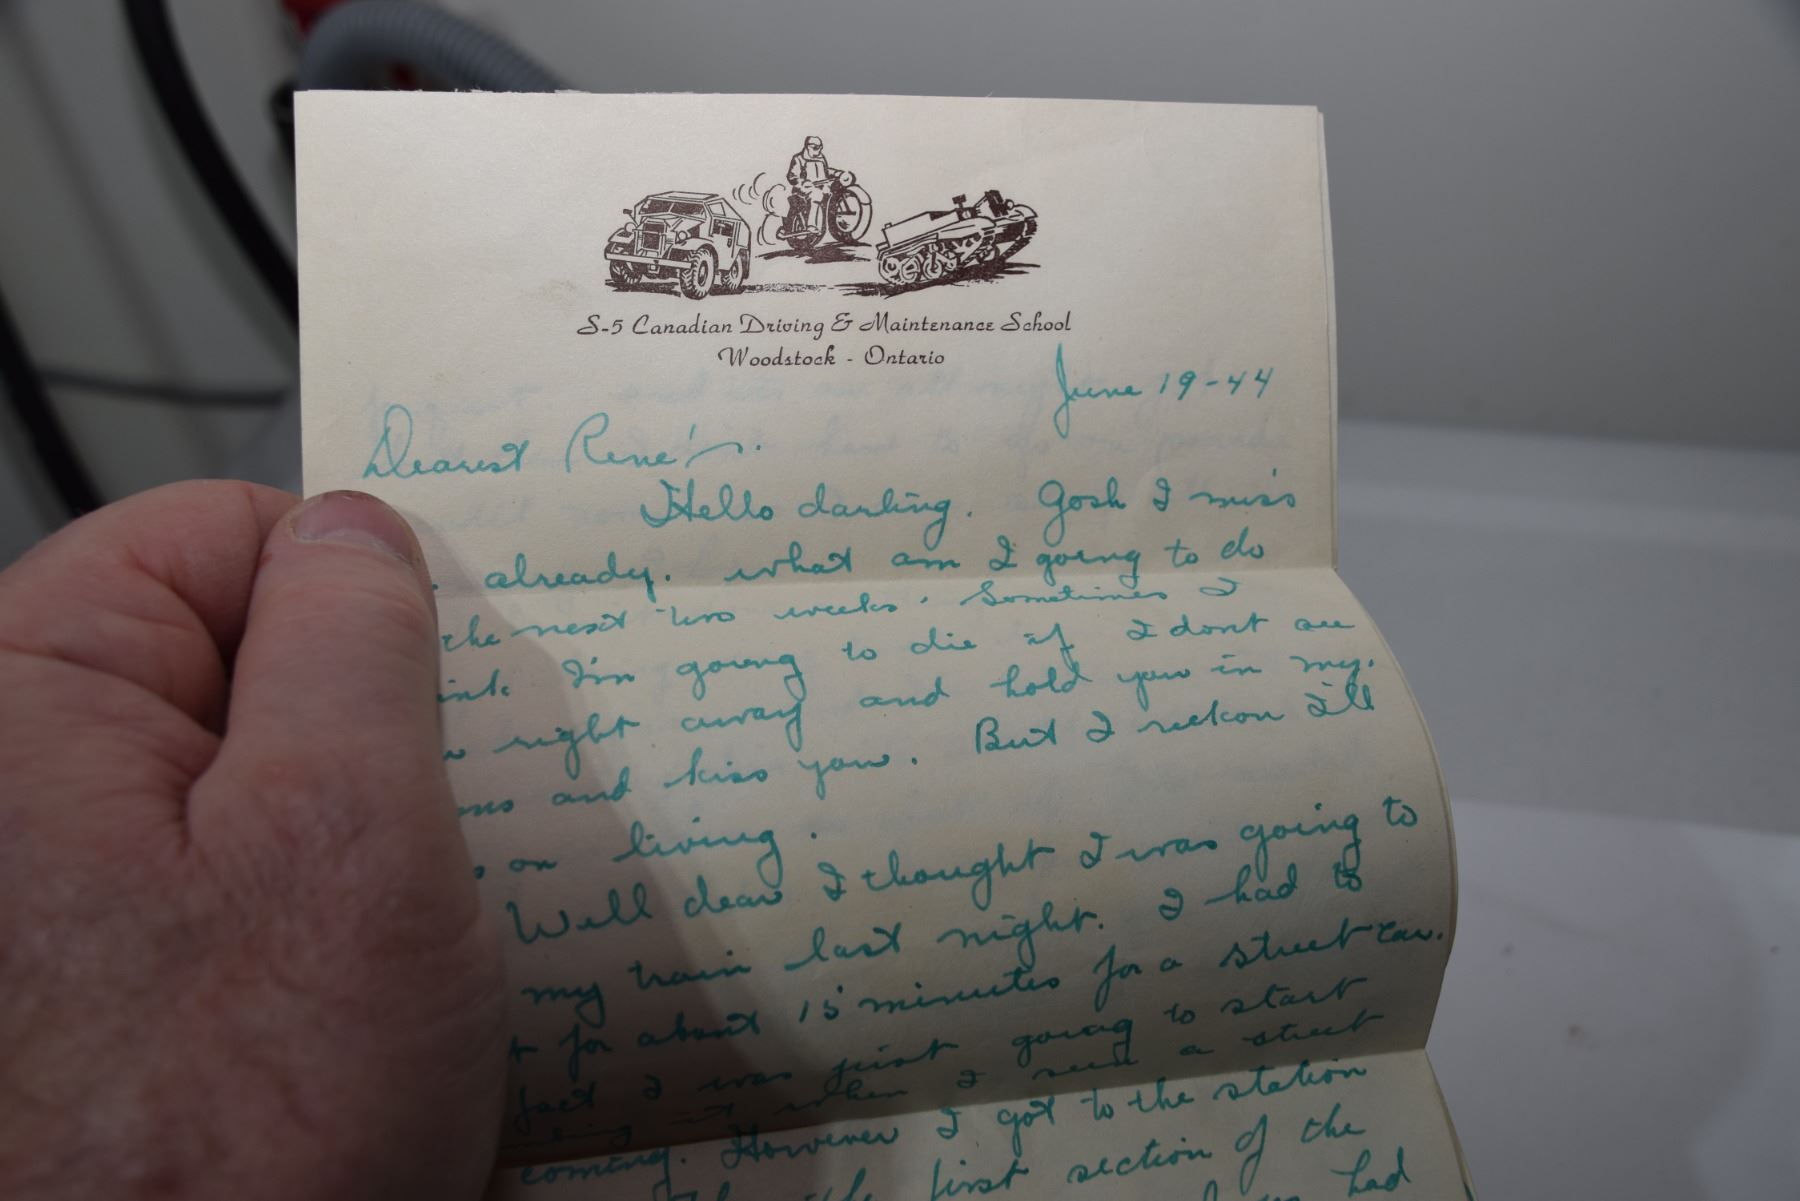 S-5 Canadian Driving & Maintenance School
Woodstock - Ontario
June 19-44
Dearest René's.
Hello darling. Gosh I miss
already. what am I going to do
the next two weeks. Sometimes I
ink I'm going to die if I dont see
right away and hold you in my
and kiss you. But I reckon I'll
on living.
Well dear I thought I was going to
my train last night. I had to
t for about 15 minutes for a street car.
fact I was just going to start
it when I seen a street
coming. However I got to the station
first section of the
had